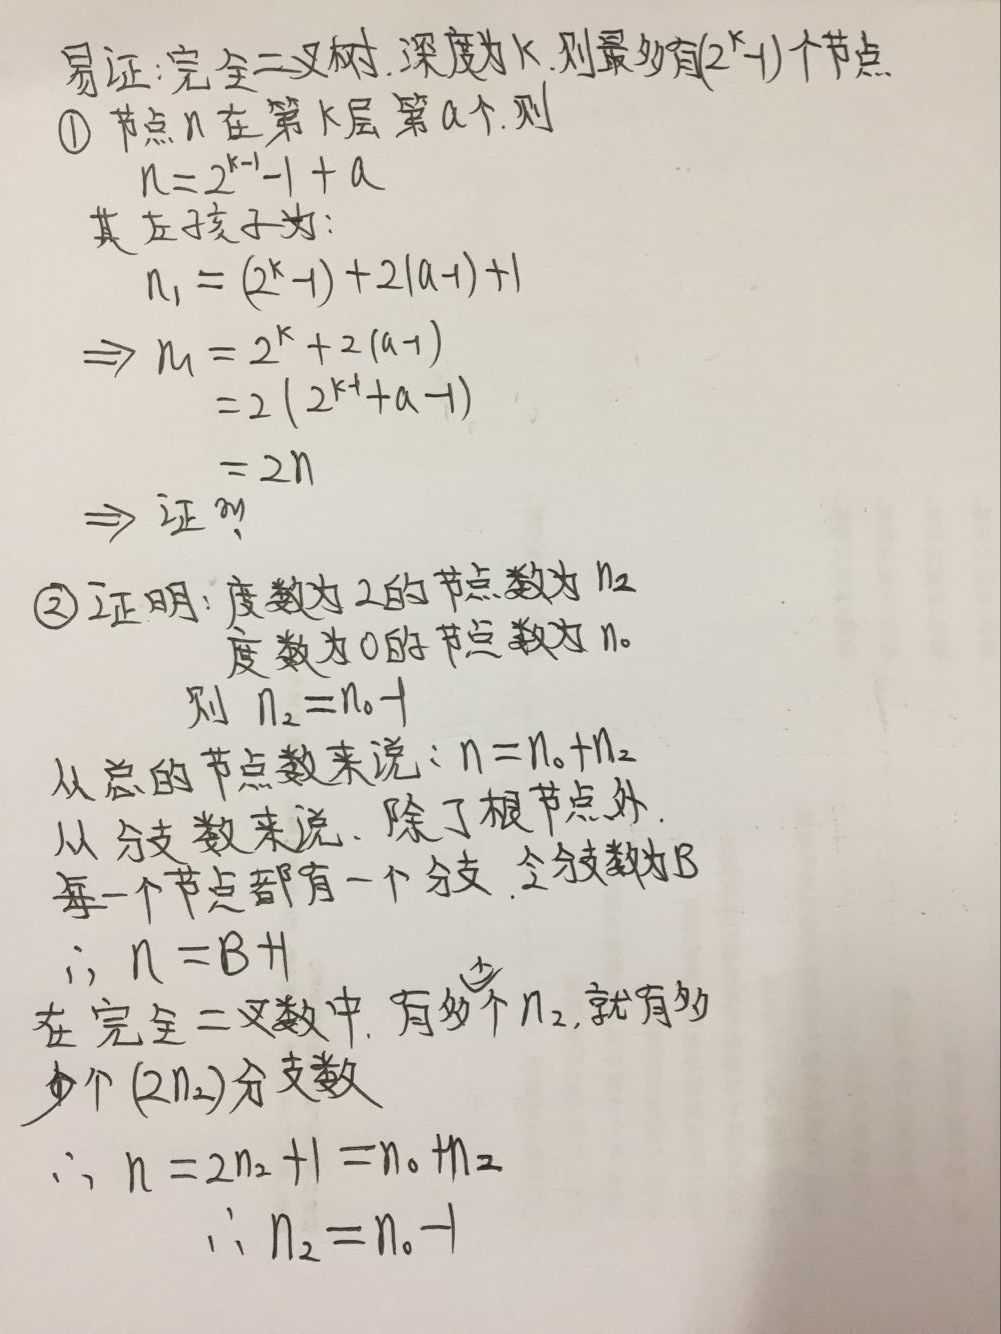 易证:完全二叉树.深度为k.则最多有(2^k-1)个节点
① 节点n在第k层第a个.则
n=2^{k-1}-1+a
其左孩子为:
n₁=(2^k-1)+2(a-1)+1
⇒ n₁=2^k+2(a-1)
=2(2^{k-1}+a-1)
=2n
⇒ 证明
② 证明:度数为2的节点数为n₂
度数为0的节点数为n₀
则 n₂=n₀-1
从总的节点数来说:n=n₀+n₂
从分支数来说.除了根节点外.
每一个节点都有一个分支.令分支数为B
∴ n=B+1
在完全二叉数中.有多少个n₂,就有多
少个(2n₂)分支数
∴ n=2n₂+1=n₀+n₂
∴ n₂=n₀-1